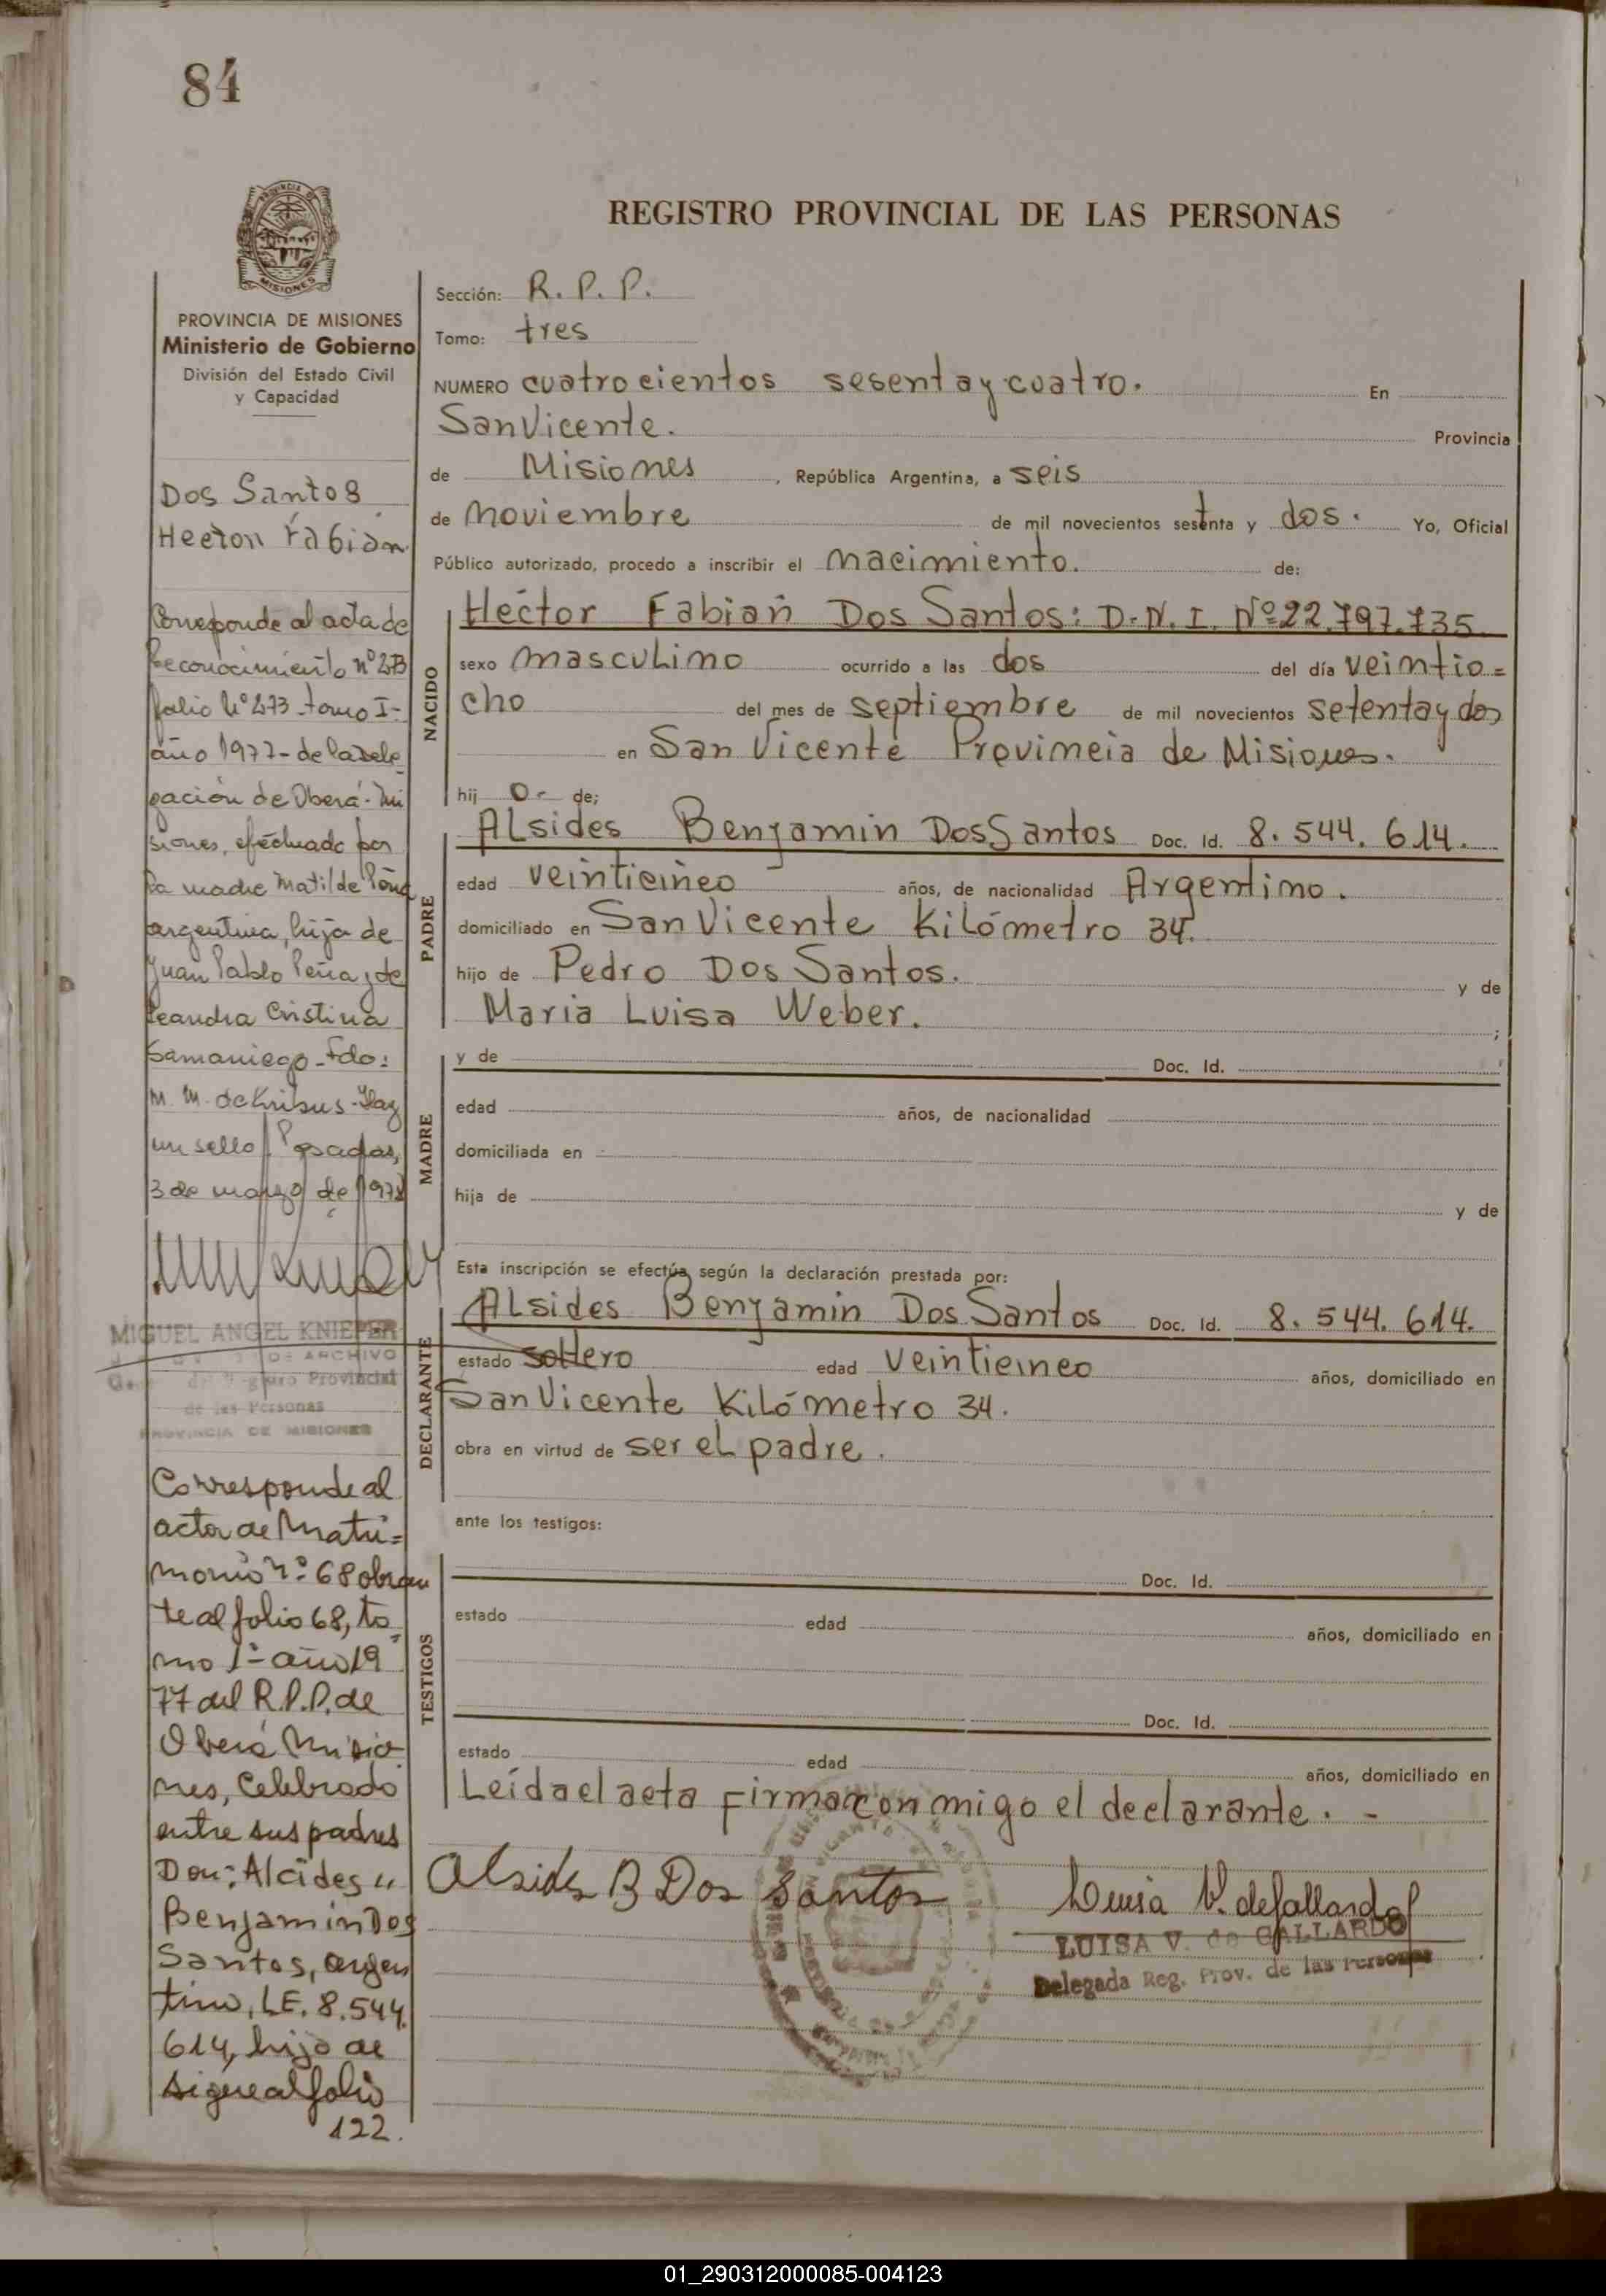 84
PROVINCIA DE MISIONES
Ministerio de Gobierno
División del Estado Civil
y Capacidad
Dos Santos
Hector Fabian
Corresponde al acta de
Reconocimiento nº 273
folio Nº 273 - tomo I-
año 1977 - de la dele
gación de Oberá - Mi
siones, efectuado por
la madre Matilde Peña
argentina, hija de
Juan Pablo Peña y de
Leandra Cristina
Samaniego - Fdo:
M. M. de Krisus - Hay
un sello Posadas,
3 de marzo de 1978
MIGUEL ANGEL KNIEPER
DE ARCHIVO
Provincial
de las Personas
PROVINCIA DE MISIONES
Corresponde al
acta de Matri=
monio nº 68 obran
te al folio 68, to
mo 1º año 19
77 del R.P.P. de
Oberá Misio
nes, Celebrado
entre sus padres
Don: Alcides
Benjamin Dos
Santos, argen
tino, L.E. 8.544.
614, hijo de
sigue al folio
122.
REGISTRO PROVINCIAL DE LAS PERSONAS
Sección: R. P. P.
Tomo: tres
NUMERO cuatrocientos sesenta y cuatro. En
San Vicente. Provincia
de Misiones, República Argentina, a seis
de noviembre de mil novecientos setenta y dos. Yo, Oficial
Público autorizado, procedo a inscribir el nacimiento. de:
NACIDO
Héctor Fabian Dos Santos: D.N.I. Nº 22.797.735
sexo masculino ocurrido a las dos del día veintio=
cho del mes de septiembre de mil novecientos setenta y dos
en San Vicente Provincia de Misiones.
hij o.- de;
PADRE
ALsides Benjamin Dos Santos Doc. Id. 8.544.614.
edad veinticinco años, de nacionalidad Argentino.
domiciliado en San Vicente Kilómetro 34.
hijo de Pedro Dos Santos. y de
Maria Luisa Weber. ;
MADRE
y de Doc. Id.
edad años, de nacionalidad
domiciliada en
hija de y de
Esta inscripción se efectúa según la declaración prestada por:
DECLARANTE
ALsides Benjamin Dos Santos Doc. Id. 8.544.614.
estado soltero edad veinticinco años, domiciliado en
San Vicente Kilómetro 34.
obra en virtud de ser el padre.
ante los testigos:
TESTIGOS
Doc. Id.
estado edad años, domiciliado en
Doc. Id.
estado edad años, domiciliado en
Leída el acta firma conmigo el declarante. -
Alsides B Dos Santos
Luisa V. de Gallardo
LUISA V. de GALLARDO
Delegada Reg. Prov. de las Personas
01_290312000085-004123